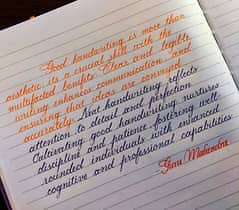 Good handwriting is more than
aesthetic its a crucial skill with the
multifaceted benefits. Clear and legible
writing enhances communication, and
ensuring that ideas are conveyed
accurately. Neat handwriting reflects
attention to detail and perfection
Cultivating good handwriting nurtures
discipline and patience, fostering well-
rounded individuals with enhanced
cognitive and professional capabilities
Mahendra